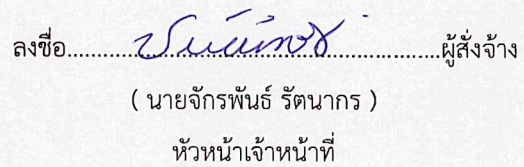 ลงชื่อ.....................................................ผู้สั่งจ้าง
( นายจักรพันธ์ รัตนากร )
หัวหน้าเจ้าหน้าที่